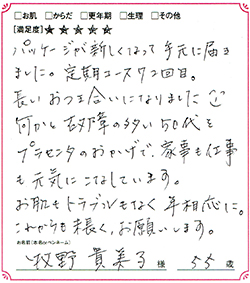 □お肌 □からだ □更年期 □生理 □その他
[満足度]★★★★★
パッケージが新しくなって手元に届き
ました。定期コース72回目。
長いおつき合いになりました
何かと故障の多い50代を
プラセンタのおかげで、家事も仕事
も元気にこなしています。
お肌もトラブルもなく年相応に。
これからも末長く、お願いします。
お名前(本名orペンネーム)
牧野 貴美子 様 55 歳